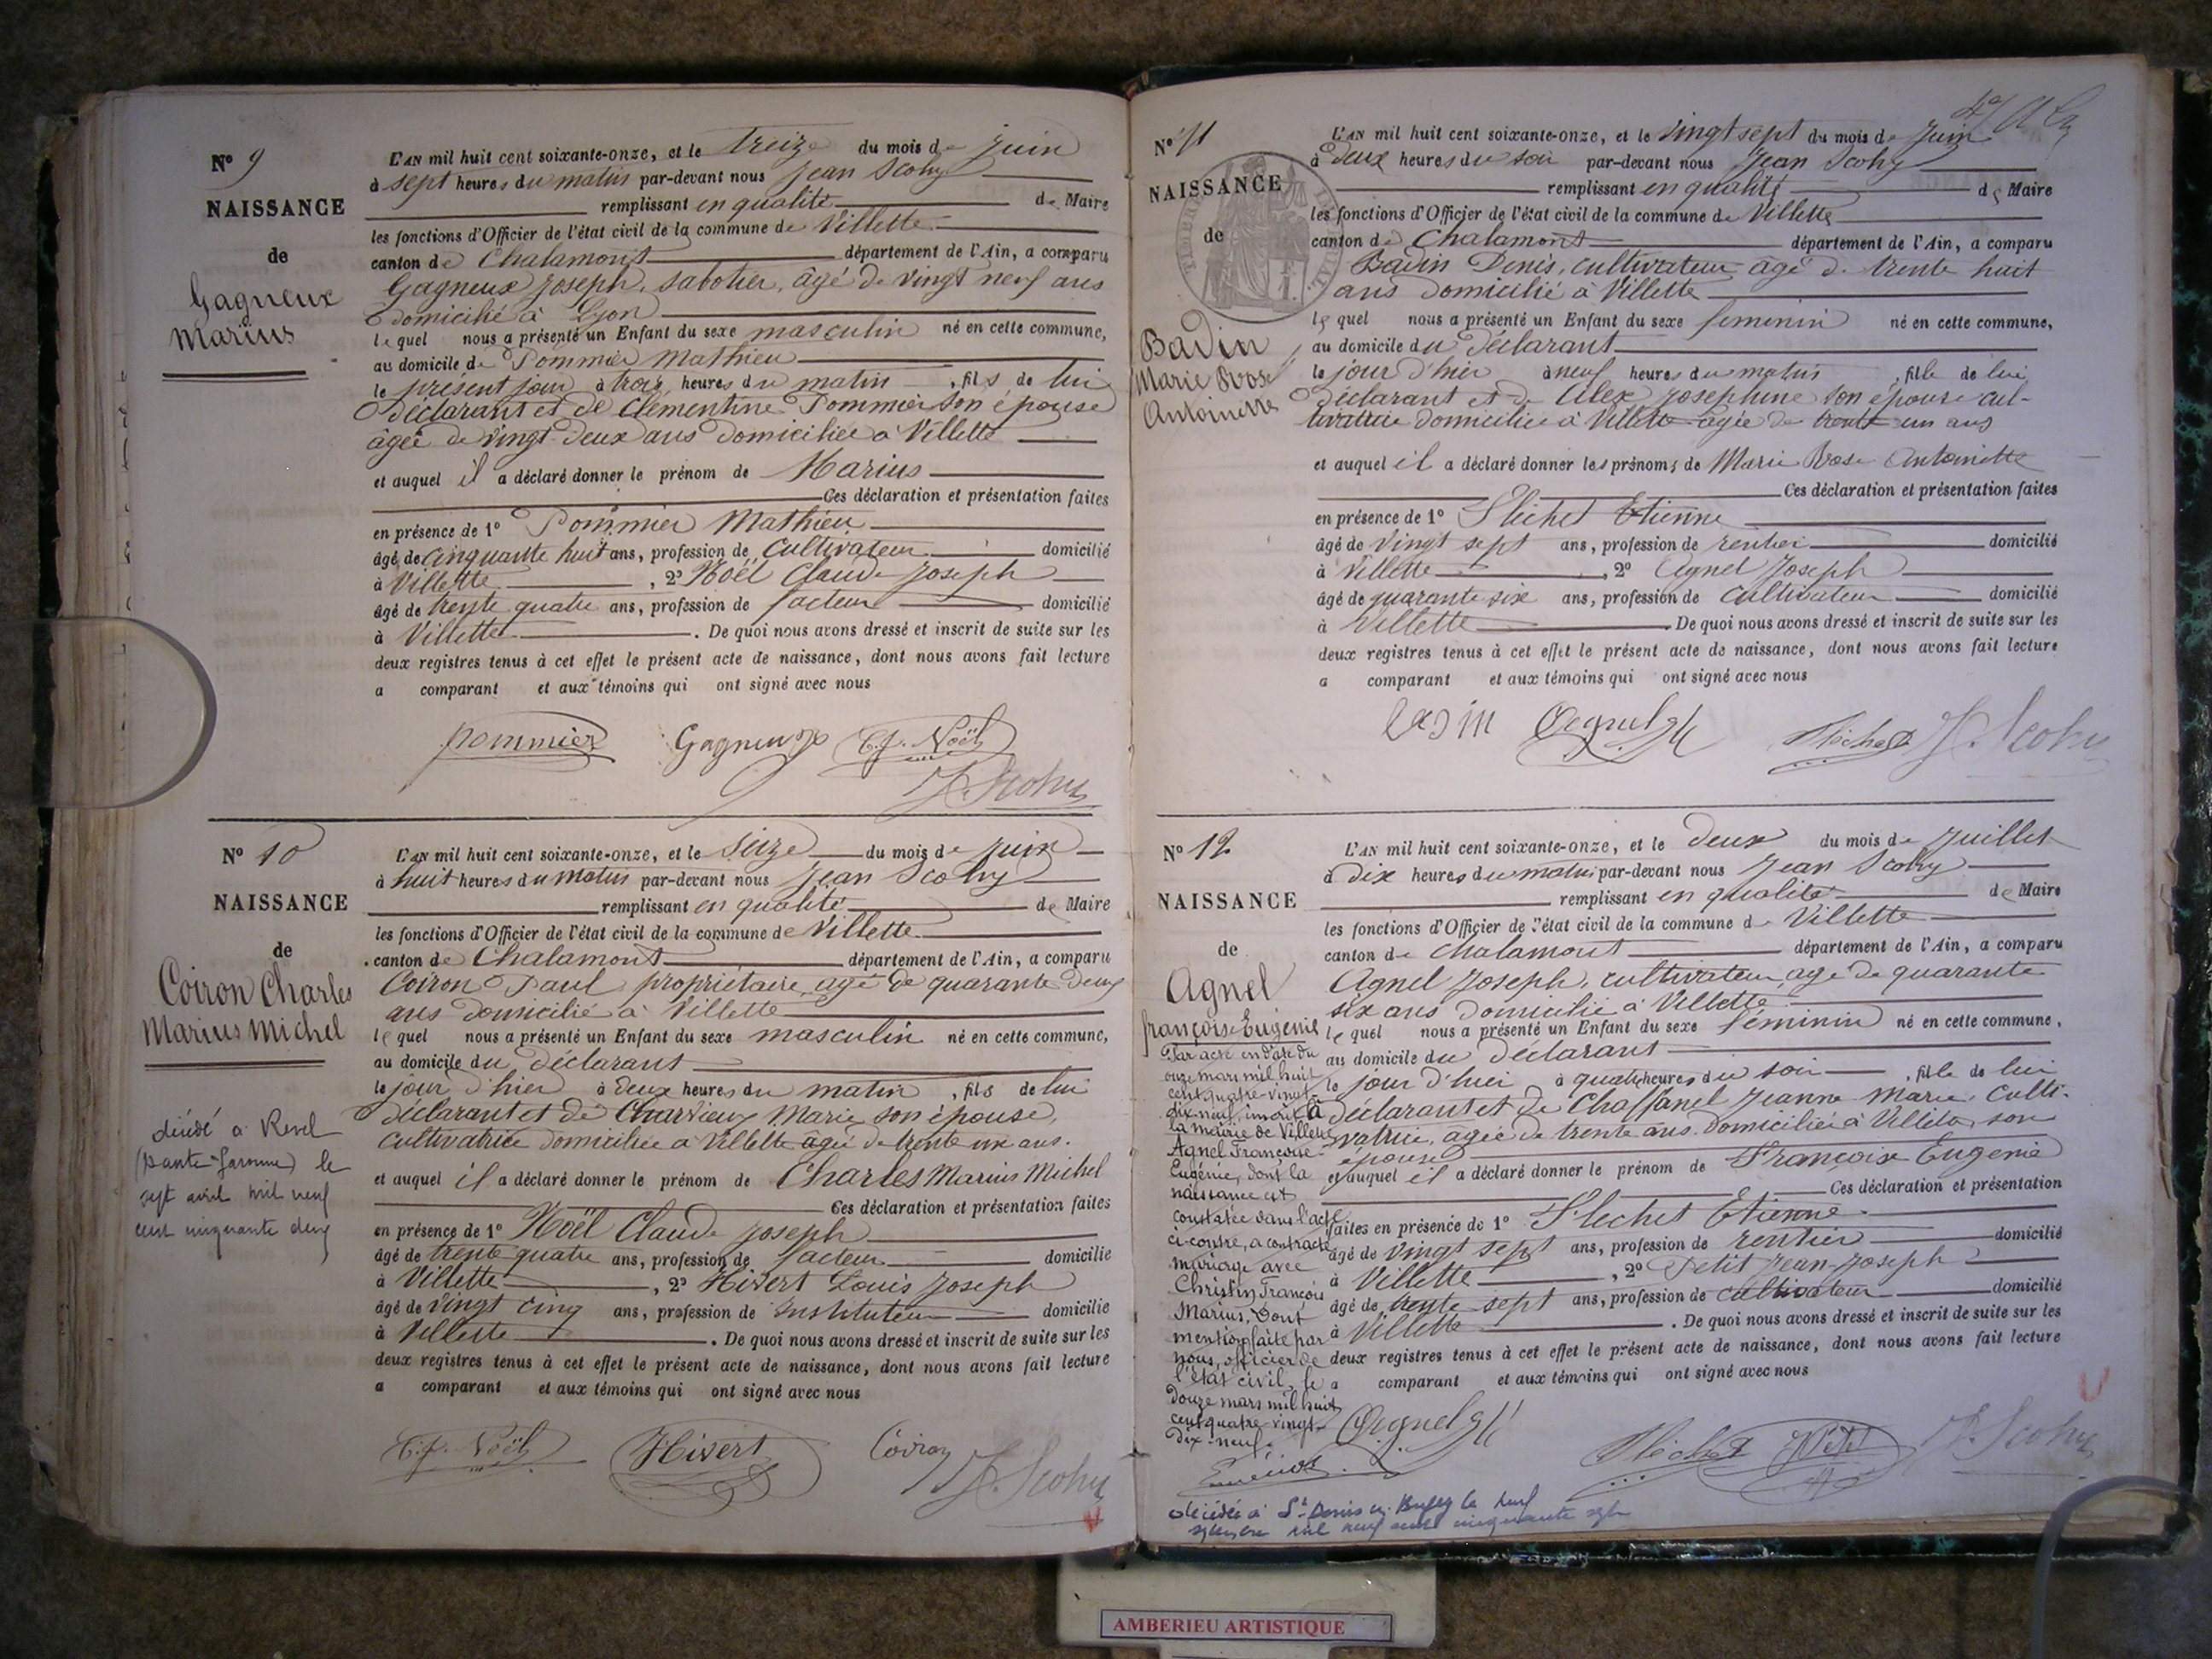 N° 9
NAISSANCE
de
Gagneux
Marius
L'AN mil huit cent soixante-onze, et le treize du mois de juin
à sept heures du matin par-devant nous Jean Scohy
remplissant en qualité de Maire
les fonctions d'Officier de l'état civil de la commune de Villette
canton de Chalamont département de l'Ain, a comparu
Gagneux Joseph, sabotier, agé de vingt neuf ans
domicilié à Lyon
lequel nous a présenté un Enfant du sexe masculin né en cette commune,
au domicile de Pommier Mathieu
le présent jour à trois heures du matin, fils de lui
déclarant et de Clémentine Pommier son épouse
âgée de vingt-deux ans domiciliée à Villette
et auquel il a déclaré donner le prénom de Marius
Ces déclaration et présentation faites
en présence de 1° Pommier Mathieu
âgé de cinquante huit ans, profession de Cultivateur domicilié
à Villette, 2° Noël Claude Joseph
âgé de trente quatre ans, profession de facteur domicilié
à Villette. De quoi nous avons dressé et inscrit de suite sur les
deux registres tenus à cet effet le présent acte de naissance, dont nous avons fait lecture
a comparant et aux témoins qui ont signé avec nous
Pommier Gagneux C.J. Noël
J. Scohy
N° 10
NAISSANCE
de
Coiron Charles
Marius Michel
décédé à Revel
(Haute-Garonne) le
sept avril mil neuf
cent cinquante deux
L'AN mil huit cent soixante-onze, et le seize du mois de juin
à huit heures du matin par-devant nous Jean Scohy
remplissant en qualité de Maire
les fonctions d'Officier de l'état civil de la commune de Villette
canton de Chalamont département de l'Ain, a comparu
Coiron Paul propriétaire, agé de quarante deux
ans domicilié à Villette
lequel nous a présenté un Enfant du sexe masculin né en cette commune,
au domicile du déclarant
le jour d'hier à deux heures du matin, fils de lui
déclarant et de Charvieux Marie son épouse,
cultivatrice domiciliée à Villette âgée de trente un ans.
et auquel il a déclaré donner le prénom de Charles Marius Michel
Ces déclaration et présentation faites
en présence de 1° Noël Claude Joseph
âgé de trente quatre ans, profession de facteur domicilié
à Villette, 2° Hivert Louis Joseph
âgé de vingt cinq ans, profession de Instituteur domicilié
à Villette. De quoi nous avons dressé et inscrit de suite sur les
deux registres tenus à cet effet le présent acte de naissance, dont nous avons fait lecture
a comparant et aux témoins qui ont signé avec nous
C.J. Noël Hivert Coiron J. Scohy
N° 11
NAISSANCE
de
Badin
Marie Rose
Antoinette
L'AN mil huit cent soixante-onze, et le vingt sept du mois de juin
à deux heures du soir par-devant nous Jean Scohy
remplissant en qualité de Maire
les fonctions d'Officier de l'état civil de la commune de Villette
canton de Chalamont département de l'Ain, a comparu
Badin Denis, cultivateur agé de trente huit
ans domicilié à Villette
lequel nous a présenté un Enfant du sexe feminin né en cette commune,
au domicile du déclarant
le jour d'hier à neuf heures du matin, fille de lui
déclarant et de Alex Josephine son épouse cul-
tivatrice domiciliée à Villette agée de trente un ans
et auquel il a déclaré donner les prénoms de Marie Rose Antoinette
Ces déclaration et présentation faites
en présence de 1° Fléchet Etienne
âgé de vingt sept ans, profession de rentier domicilié
à Villette, 2° Agnel Joseph
âgé de quarante six ans, profession de cultivateur domicilié
à Villette. De quoi nous avons dressé et inscrit de suite sur les
deux registres tenus à cet effet le présent acte de naissance, dont nous avons fait lecture
a comparant et aux témoins qui ont signé avec nous
Badin Agnel Fléchet J. Scohy
N° 12
NAISSANCE
de
Agnel
françoise Eugénie
Par acte en date du
onze mars mil huit
cent quatre-vingt-
dix-neuf, inscrit à
la mairie de Villette
Agnel Françoise-
Eugénie, dont la
naissance est
constatée dans l'acte
ci-contre, a contracté
mariage avec
Christin François
Marius, Dont
mention faite par
nous, officier de
l'état civil, le
Douze mars mil huit
cent quatre-vingt-
dix-neuf.
décédée à St Denis en Bugey le neuf
mil neuf cent cinquante sept
L'AN mil huit cent soixante-onze, et le deux du mois de juillet
à dix heures du matin par-devant nous Jean Scohy
remplissant en qualité de Maire
les fonctions d'Officier de l'état civil de la commune de Villette
canton de Chalamont département de l'Ain, a comparu
Agnel Joseph, cultivateur, agé de quarante
six ans domicilié à Villette
lequel nous a présenté un Enfant du sexe féminin né en cette commune,
au domicile du déclarant
le jour d'hier à quatre heures du soir, fille de lui
déclarant et de Chassanel Jeanne Marie, culti-
vatrice, agée de trente ans domiciliée à Villette, son
épouse
et auquel il a déclaré donner le prénom de Françoise Eugenie
Ces déclaration et présentation
faites en présence de 1° Flechet Etienne
âgé de vingt sept ans, profession de rentier domicilié
à Villette, 2° Petit Jean-Joseph
âgé de trente sept ans, profession de cultivateur domicilié
à Villette. De quoi nous avons dressé et inscrit de suite sur les
deux registres tenus à cet effet le présent acte de naissance, dont nous avons fait lecture
a comparant et aux témoins qui ont signé avec nous
Agnel Fléchet Petit J. Scohy
AMBERIEU ARTISTIQUE